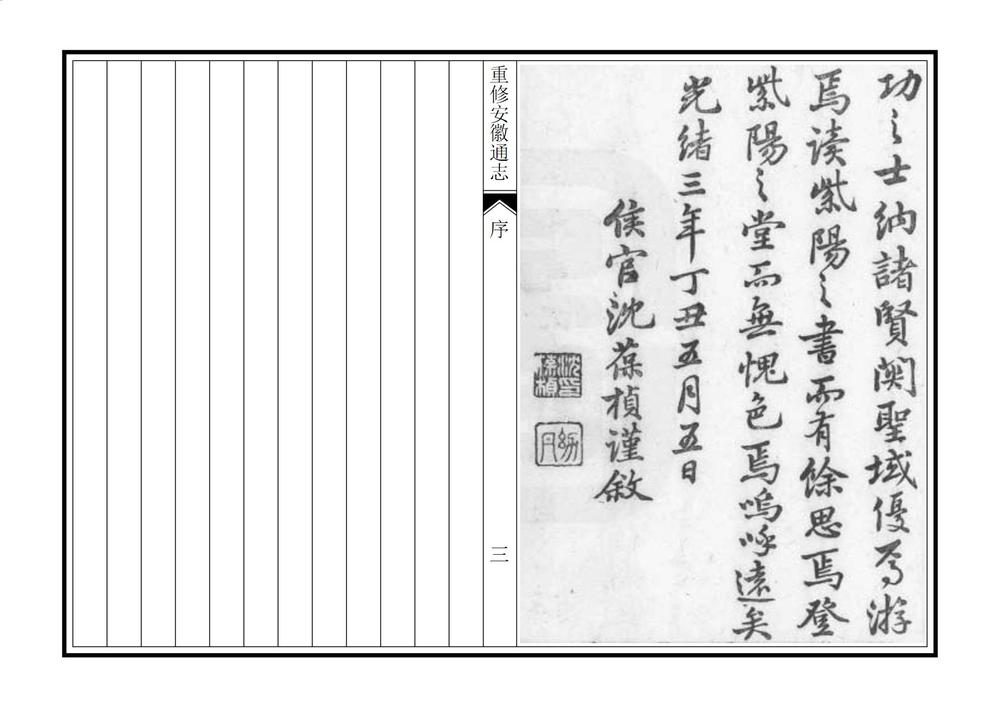 功之士納諸賢関聖域優焉游
焉读紫陽之書而有餘思焉登
紫陽之堂而無愧色焉嗚呼遠矣
光緒三年丁丑五月五日
侯官沈葆楨谨敘
沈印葆楨
幼丹
重修安徽通志
序
三